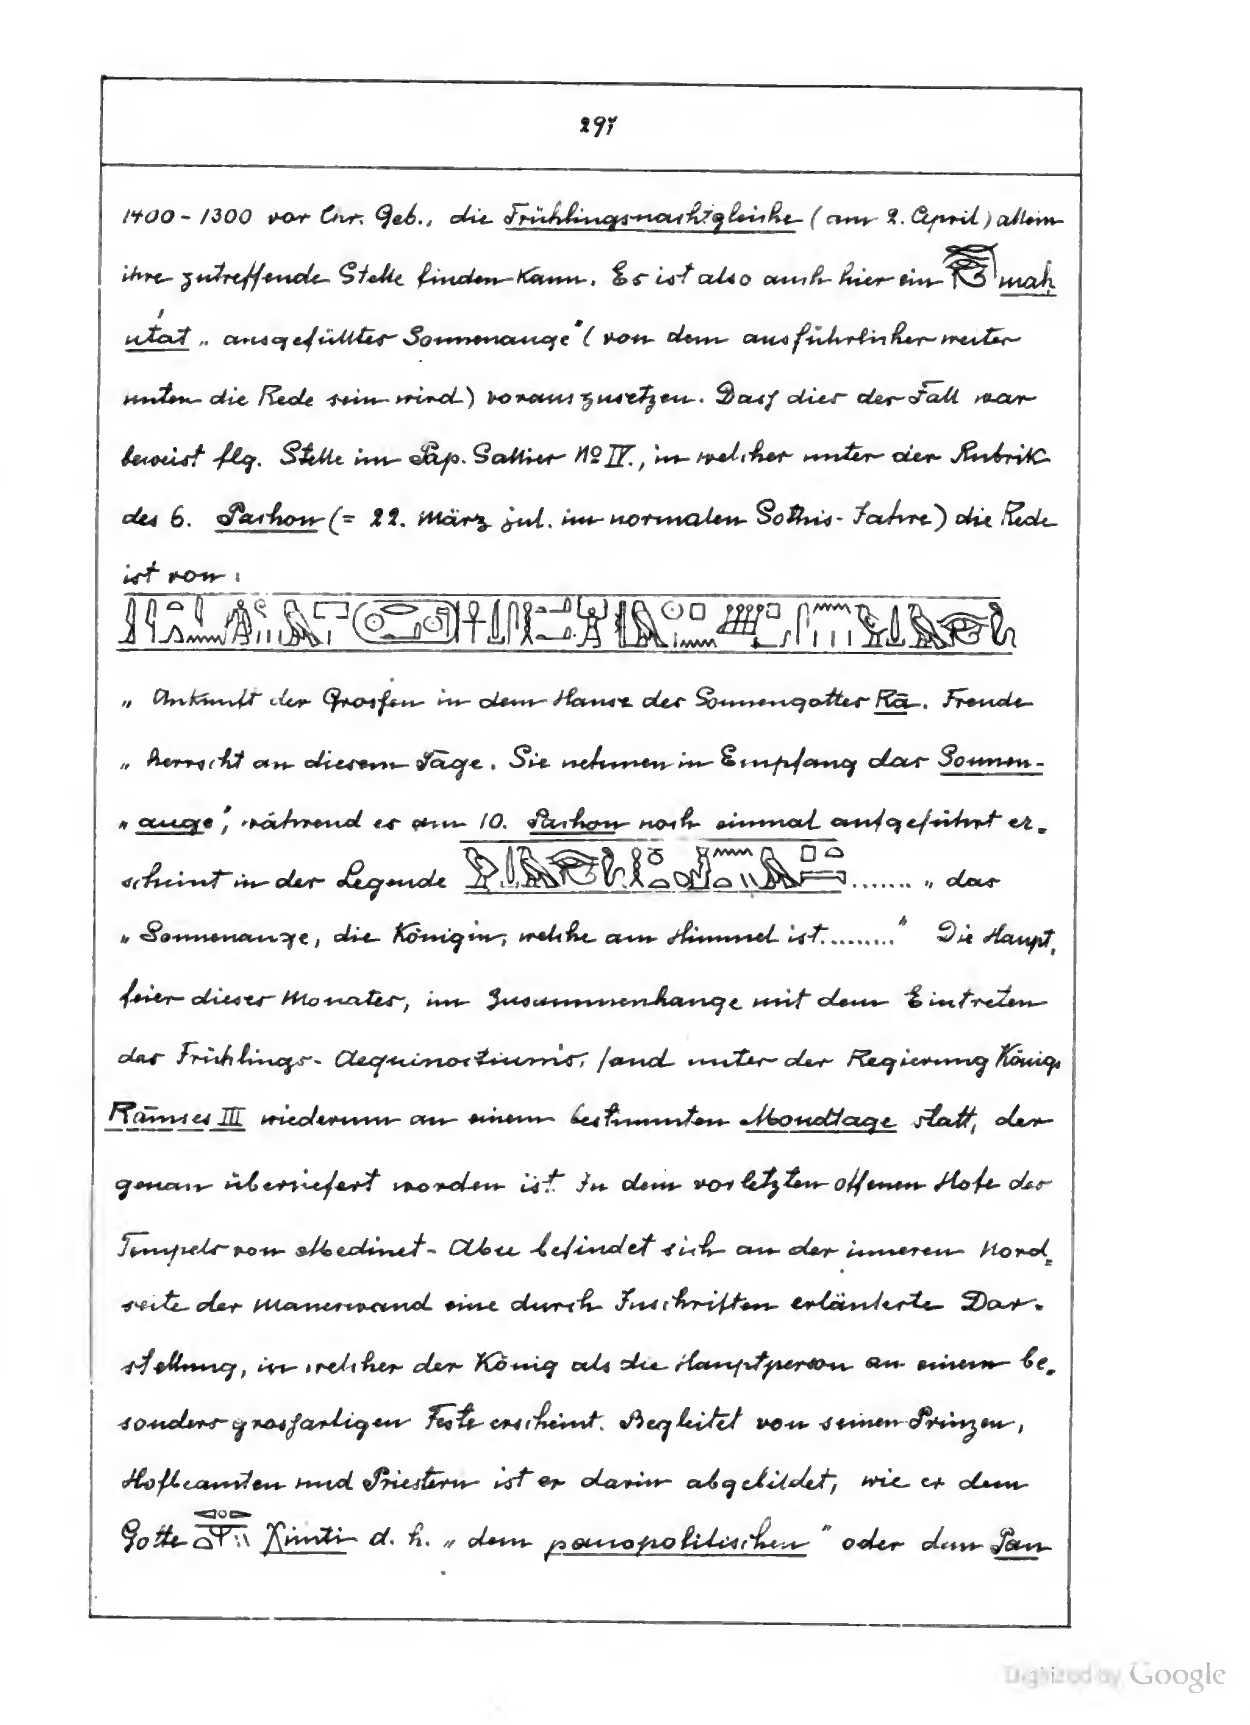 297
1400-1300 vor Chr. Geb., die Frühlingsnachtgleiche (am 2. April) allein
ihre zutreffende Stelle finden kann. Es ist also auch hier ein meḥ
ut'at „ausgefülltes Sonnenauge" (von dem ausführlicher weiter
unten die Rede sein wird) vorauszusetzen. Dass dies der Fall war
beweist flg. Stelle im Pap. Sallier No IV., in welcher unter der Rubrik
des 6. Pachon (= 22. März jul. im normalen Sothis-Jahre) die Rede
ist von:
„Ankunft der Grossen in dem Hause des Sonnengottes Rā. Freude
„herrscht an diesem Tage. Sie nehmen in Empfang das Sonnen-
„auge", während es am 10. Pachon noch einmal aufgeführt er-
scheint in der Legende ........ „das
„Sonnenauge, die Königin, welche am Himmel ist........." Die Haupt-
feier dieses Monates, im Zusammenhange mit dem Eintreten
des Frühlings-Aequinoctiums, fand unter der Regierung Königs
Rāmses III wiederum an einem bestimmten Mondtage statt, der
genau überliefert worden ist. In dem vorletzten offenen Hofe des
Tempels von Medinet-Abu befindet sich an der inneren Nord-
seite der Mauerwand eine durch Inschriften erläuterte Dar-
stellung, in welcher der König als die Hauptperson an einem be-
sonders grossartigen Feste erscheint. Begleitet von seinen Prinzen,
Hofbeamten und Priestern ist er darin abgebildet, wie er dem
Gotte Ximti d. h. „dem panopolitischen" oder dem Pan
Digitized by Google